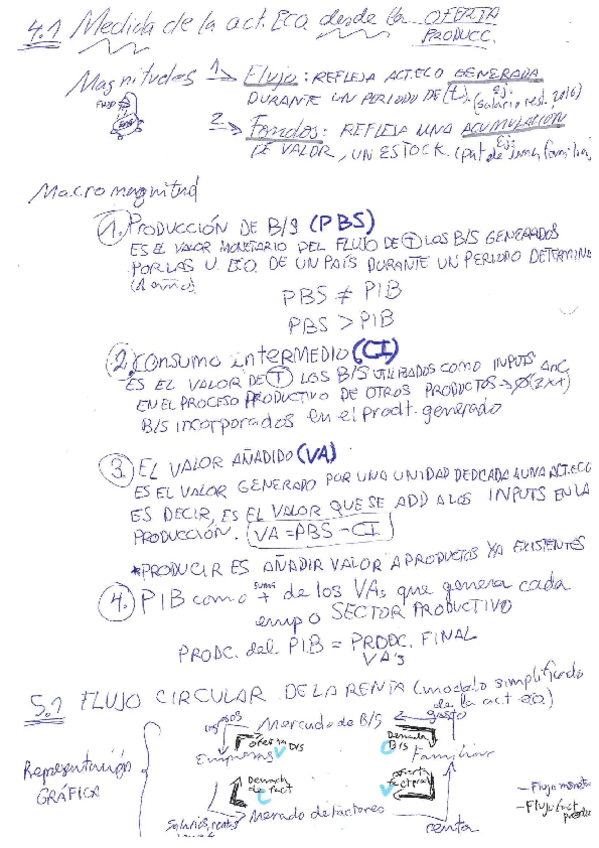 4.1 Medida de la act. Eco desde la OFERTA
PRODUCC.
Magnitudes 1 → Flujo: REFLEJA ACT.ECO GENERADA
DURANTE UN PERIODO DE (t). (Ej: salario, res. 2016)
FLUJO
2 → Fondos: REFLEJA UNA ACUMULACION
DE VALOR, UN ESTOCK. (Ej: pat de una familia)
Macromagnitud
1. PRODUCCIÓN DE B/S (PBS)
ES EL VALOR MONETARIO DEL FLUJO DE T LOS B/S GENERADOS
POR LAS U. ECO. DE UN PAÍS DURANTE UN PERIODO DETERMINA
(1 año)
PBS ≠ PIB
PBS > PIB
2. CONSUMO INTERMEDIO (CI)
ES EL VALOR DE T LOS B/S UTILIZADOS COMO INPUTS
EN EL PROCESO PRODUCTIVO DE OTROS PRODUCTOS →
B/S incorporados en el prodt. generado
3. EL VALOR AÑADIDO (VA)
ES EL VALOR GENERADO POR UNA UNIDAD DEDICADA A UNA ACT.ECO
ES DECIR, ES EL VALOR QUE SE ADD A LOS INPUTS EN LA
PRODUCCIÓN. VA = PBS - CI
*PRODUCIR ES AÑADIR VALOR A PRODUCTOS YA EXISTENTES
4. PIB como suma + de los VAs que genera cada
emp o SECTOR PRODUCTIVO
PRODC. del PIB = PRODC. FINAL
VA's
5.1 FLUJO CIRCULAR DE LA RENTA (modelo simplificado
de la act eco)
Mercado de B/S
gasto
Oferta B/S
Demanda
B/S
Empresas
Familias
Representación
GRÁFICA
Demanda
de fact
oferta
factorial
Mercado de factores
Salarios, rentas
renta
- Flujo monet
- Flujo fact